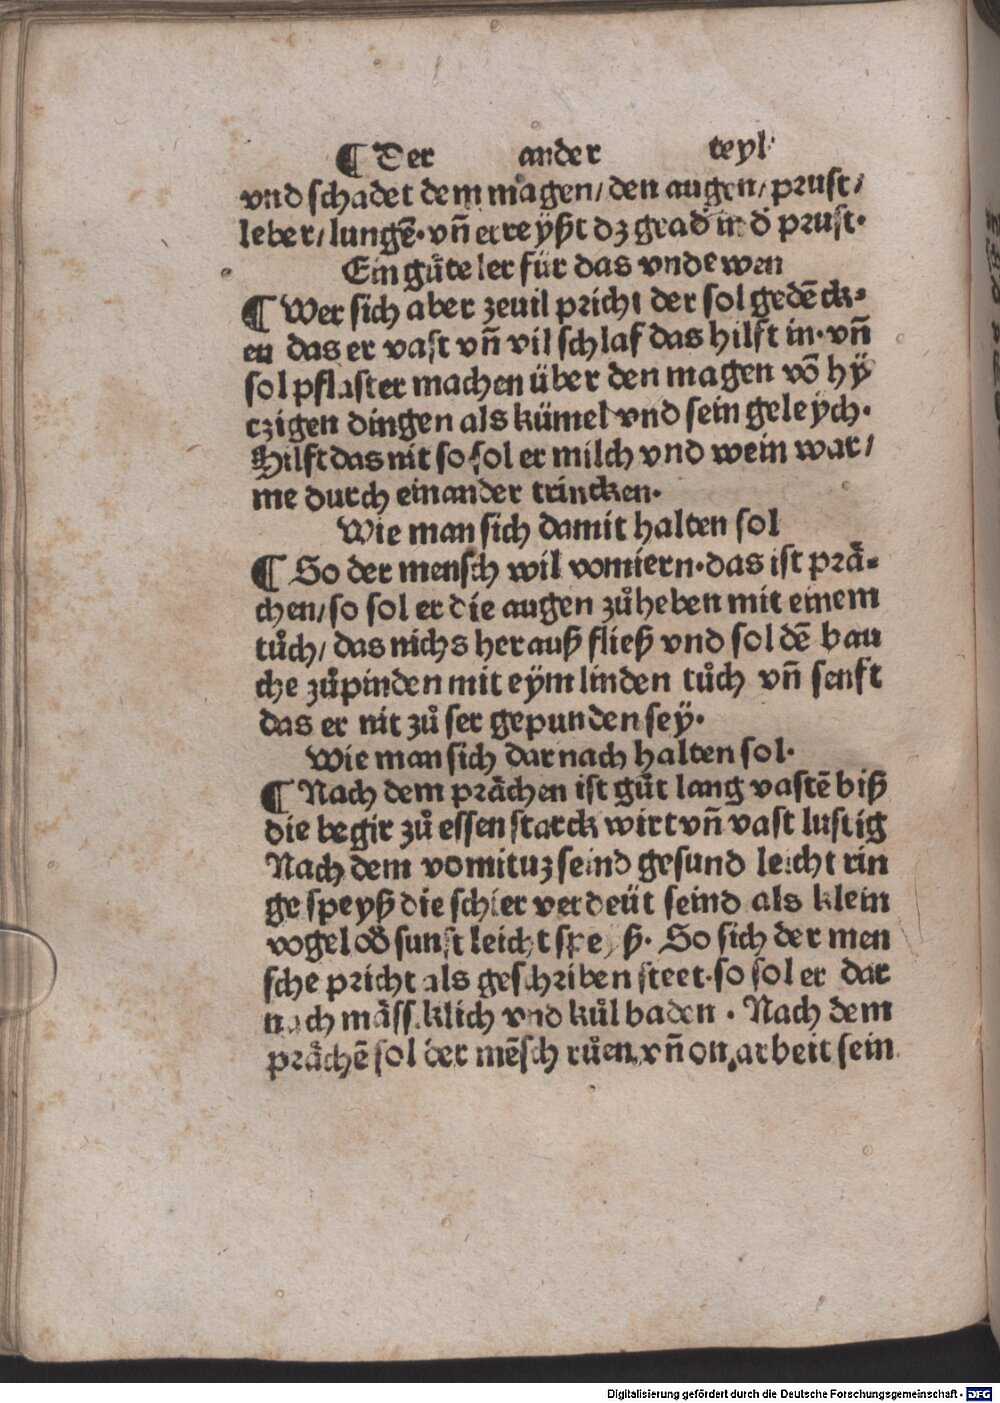 ¶ Der ander teyl
vnd schadet dem magen/ den augen/ prust/
leber/ lungē· vñ erreyßt dz geäd in d̕ prust·
Ein gůte ler für das vndewen
¶ Wer sich aber zeuil pricht der sol gedēck⸗
en das er vast vñ vil schlaf das hilft in· vñ
sol pflaster machen über den magen vō hÿ
tzigen dingen als kümel vnd sein geleych·
Hilft das nit so sol er milch vnd wein war/
me durch einander trincken·
Wie man sich damit halten sol
¶ So der mensch wil vomiern· das ist prä⸗
chen/ so sol er die augen zůheben mit einem
tůch/ das nichs herauß fließ vnd sol dē bau
che zůpinden mit eym linden tůch vñ senft
das er nit zů ser gepunden seÿ·
Wie man sich darnach halten sol·
¶ Nach dem prächen ist gůt lang vastē biß
die begir zů essen starck wirt vñ vast lustig
Nach dem vomituz seind gesund leicht rin
ge speyß die schier verdeüt seind als klein
vogel od̕ sunst leicht speyß· So sich der men
sche pricht als geschriben steet· so sol er dar
nach mässiklich vnd kůl baden · Nach dem
prächē sol der mēsch růen, vñ on arbeit sein
Digitalisierung gefördert durch die Deutsche Forschungsgemeinschaft - DFG